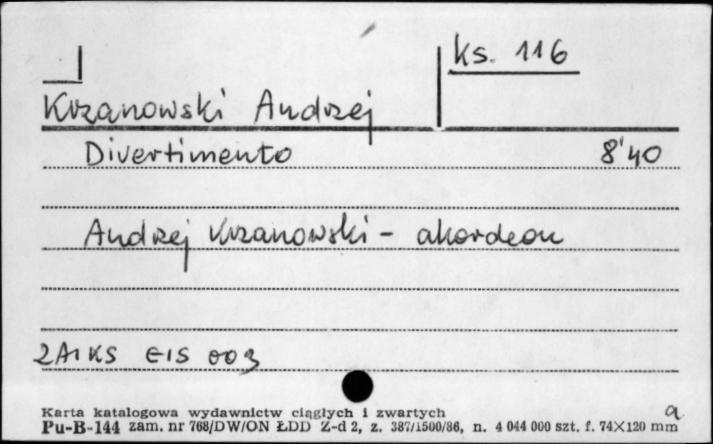 ks. 116
Krzanowski Andrzej
Divertimento 8'40
Andrzej Krzanowski - akordeon
2AIKS EIS 003
Karta katalogowa wydawnictw ciągłych i zwartych a
Pu-B-144 zam. nr 768/DW/ON ŁDD Z-d 2, z. 387/1500/86, n. 4 044 000 szt. f. 74X120 mm